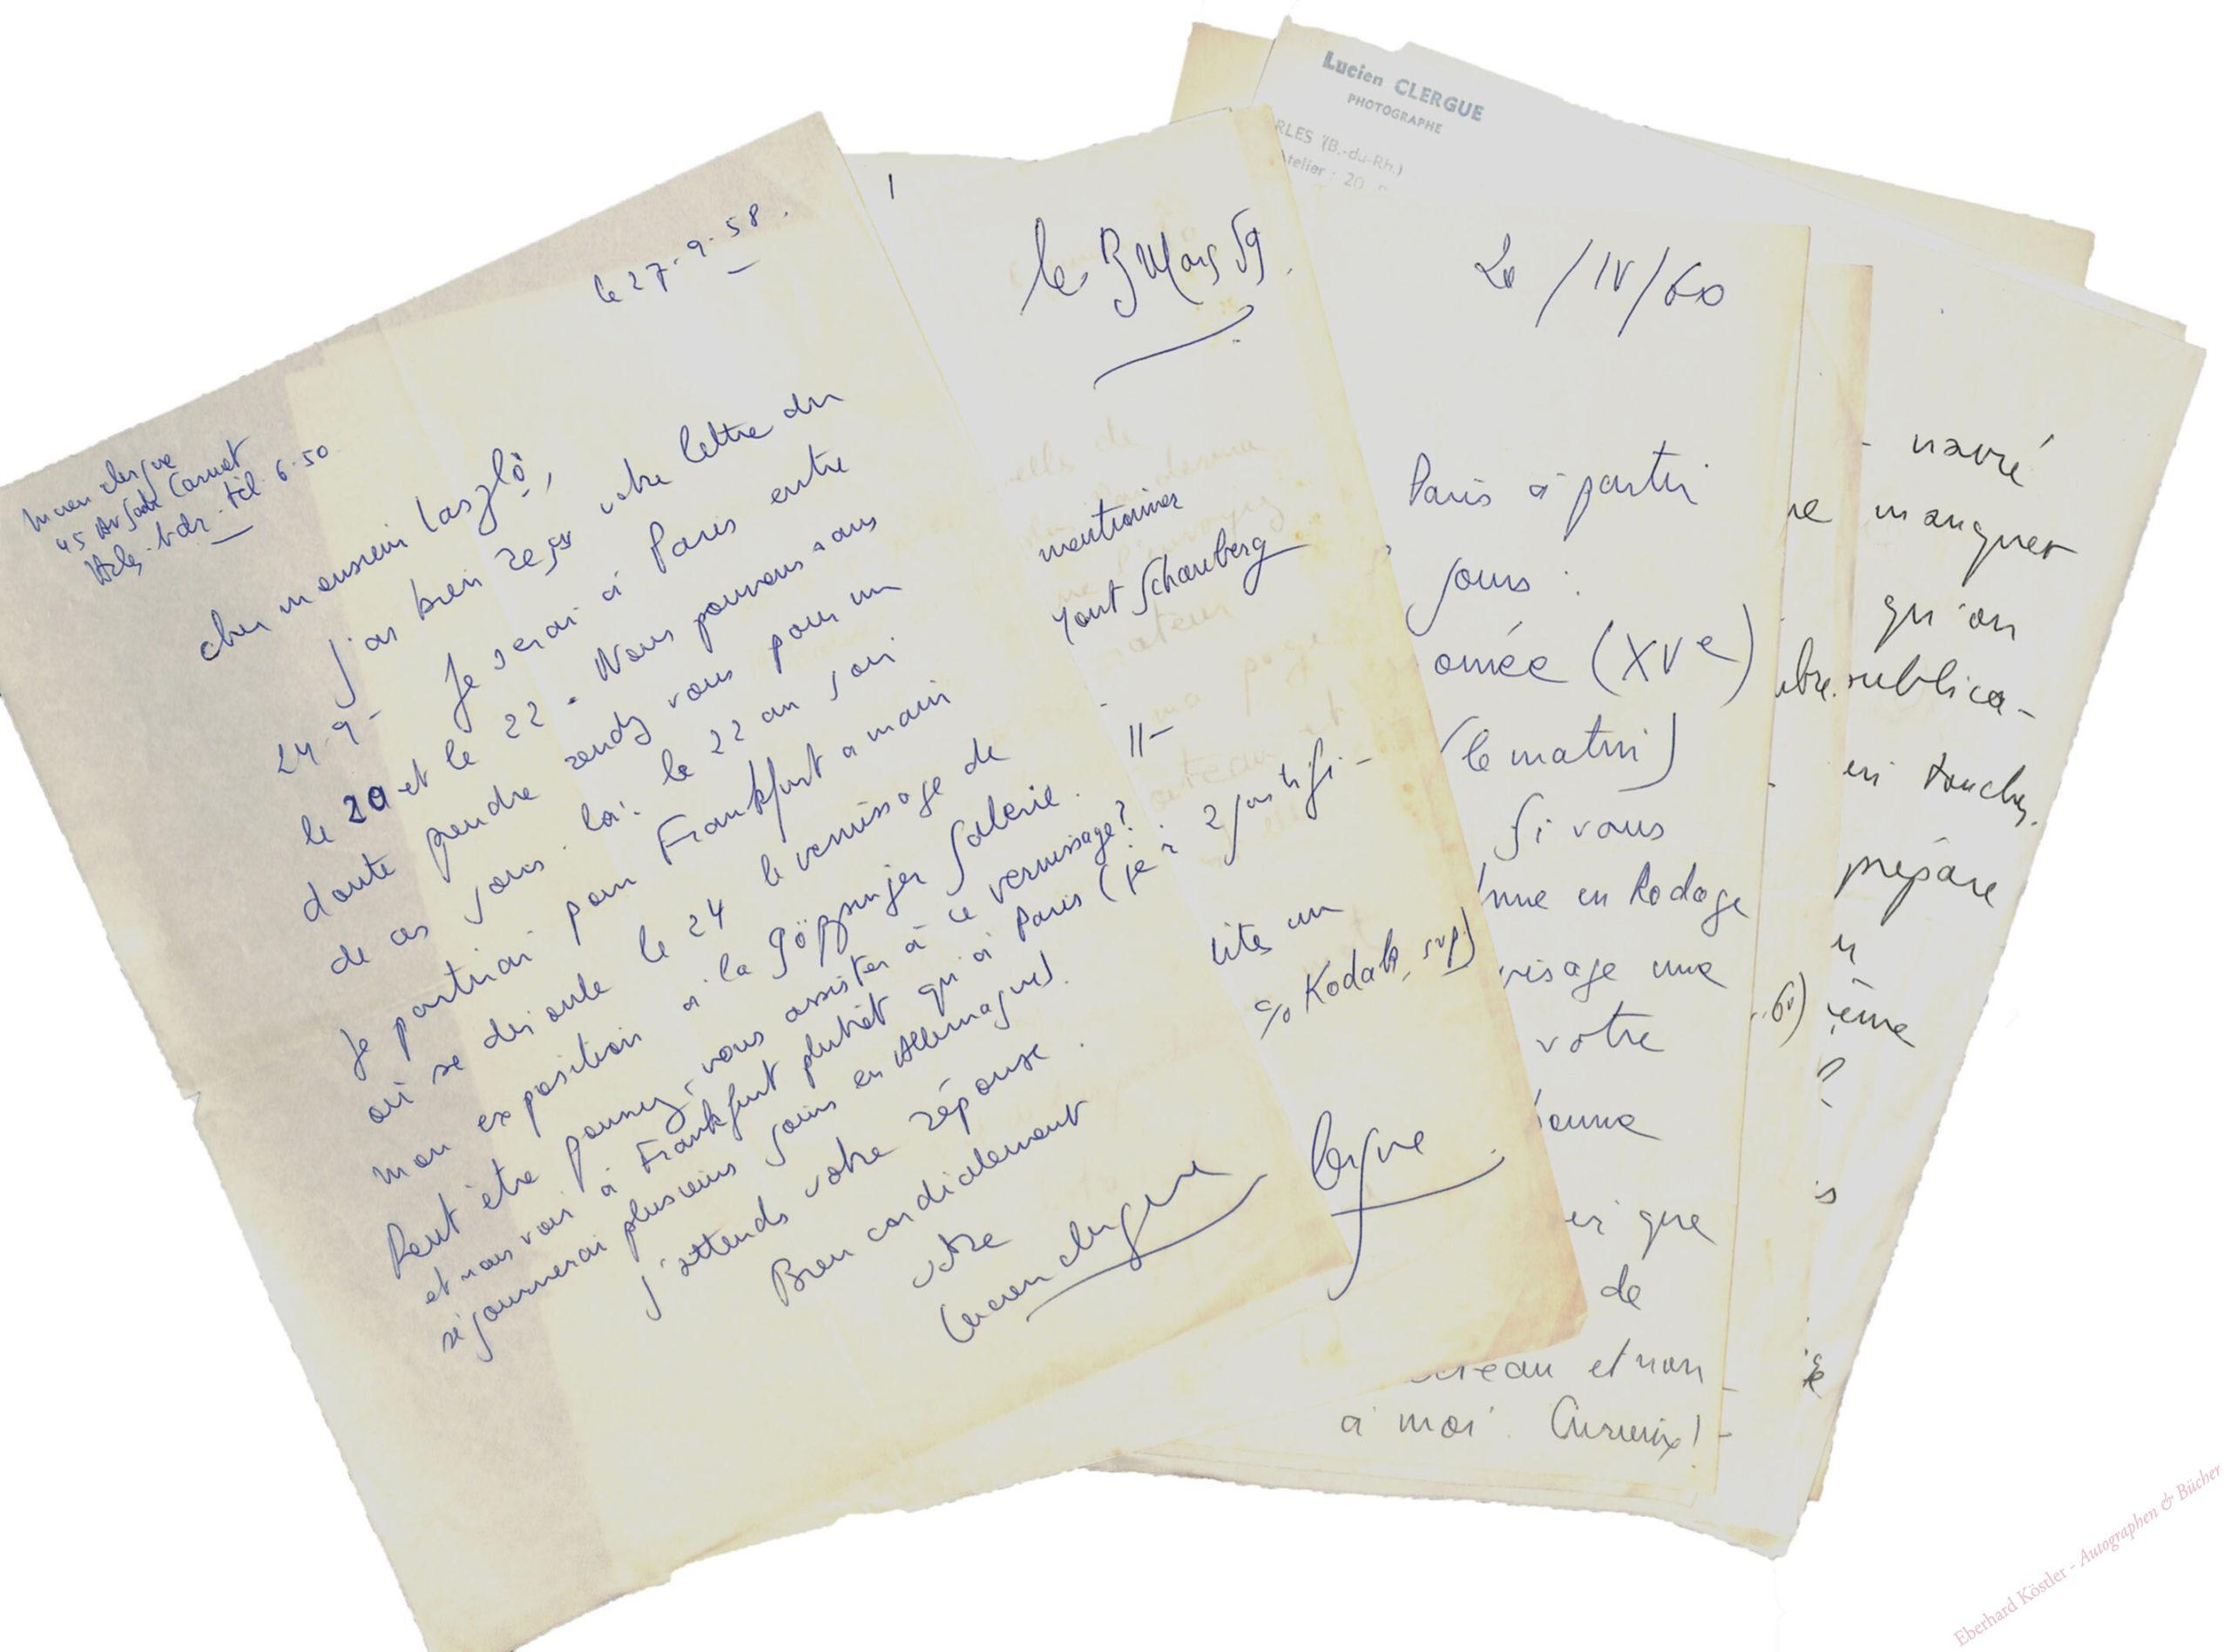 Lucien Clergue
45 Av Sadi Carnot
Arles. b.d.r. tél. 6.50
le 27.9.58.
cher monsieur Laszlò,
j'ai bien reçu votre lettre du
24.9 - Je serai à Paris entre
le 20 et le 22. Nous pouvons sans
doute prendre rendez vous pour un
de ces jours là: le 22 au soir
je partirai pour Frankfurt a main
où se déroule le 24 le vernissage de
mon exposition à la Göppinger Galerie.
Peut être pourrez-vous assister à ce vernissage?
et nous voir à Frankfurt plutôt qu'à Paris (je
séjournerai plusieurs jours en Allemagne).
J'attends votre réponse.
Bien cordialement
votre
Lucien Clergue
1
le 3 Mars 59.
mentionner
2 justifi-
c/o Kodak, svp)
Clergue
Lucien CLERGUE
PHOTOGRAPHE
RLES (B.-du-Rh.)
telier : 20
20/IV/60
Paris à partir
jours :
omée (XVe)
(le matin)
Si vous
nne en Rodage
visage une
votre
onne
er que
de
reau et non
à moi. Curieux! -
- navré
ne manquer
qu'on
ublica-
en touches.
prépare
60)
ême
Eberhard Köstler - Autographen & Bücher